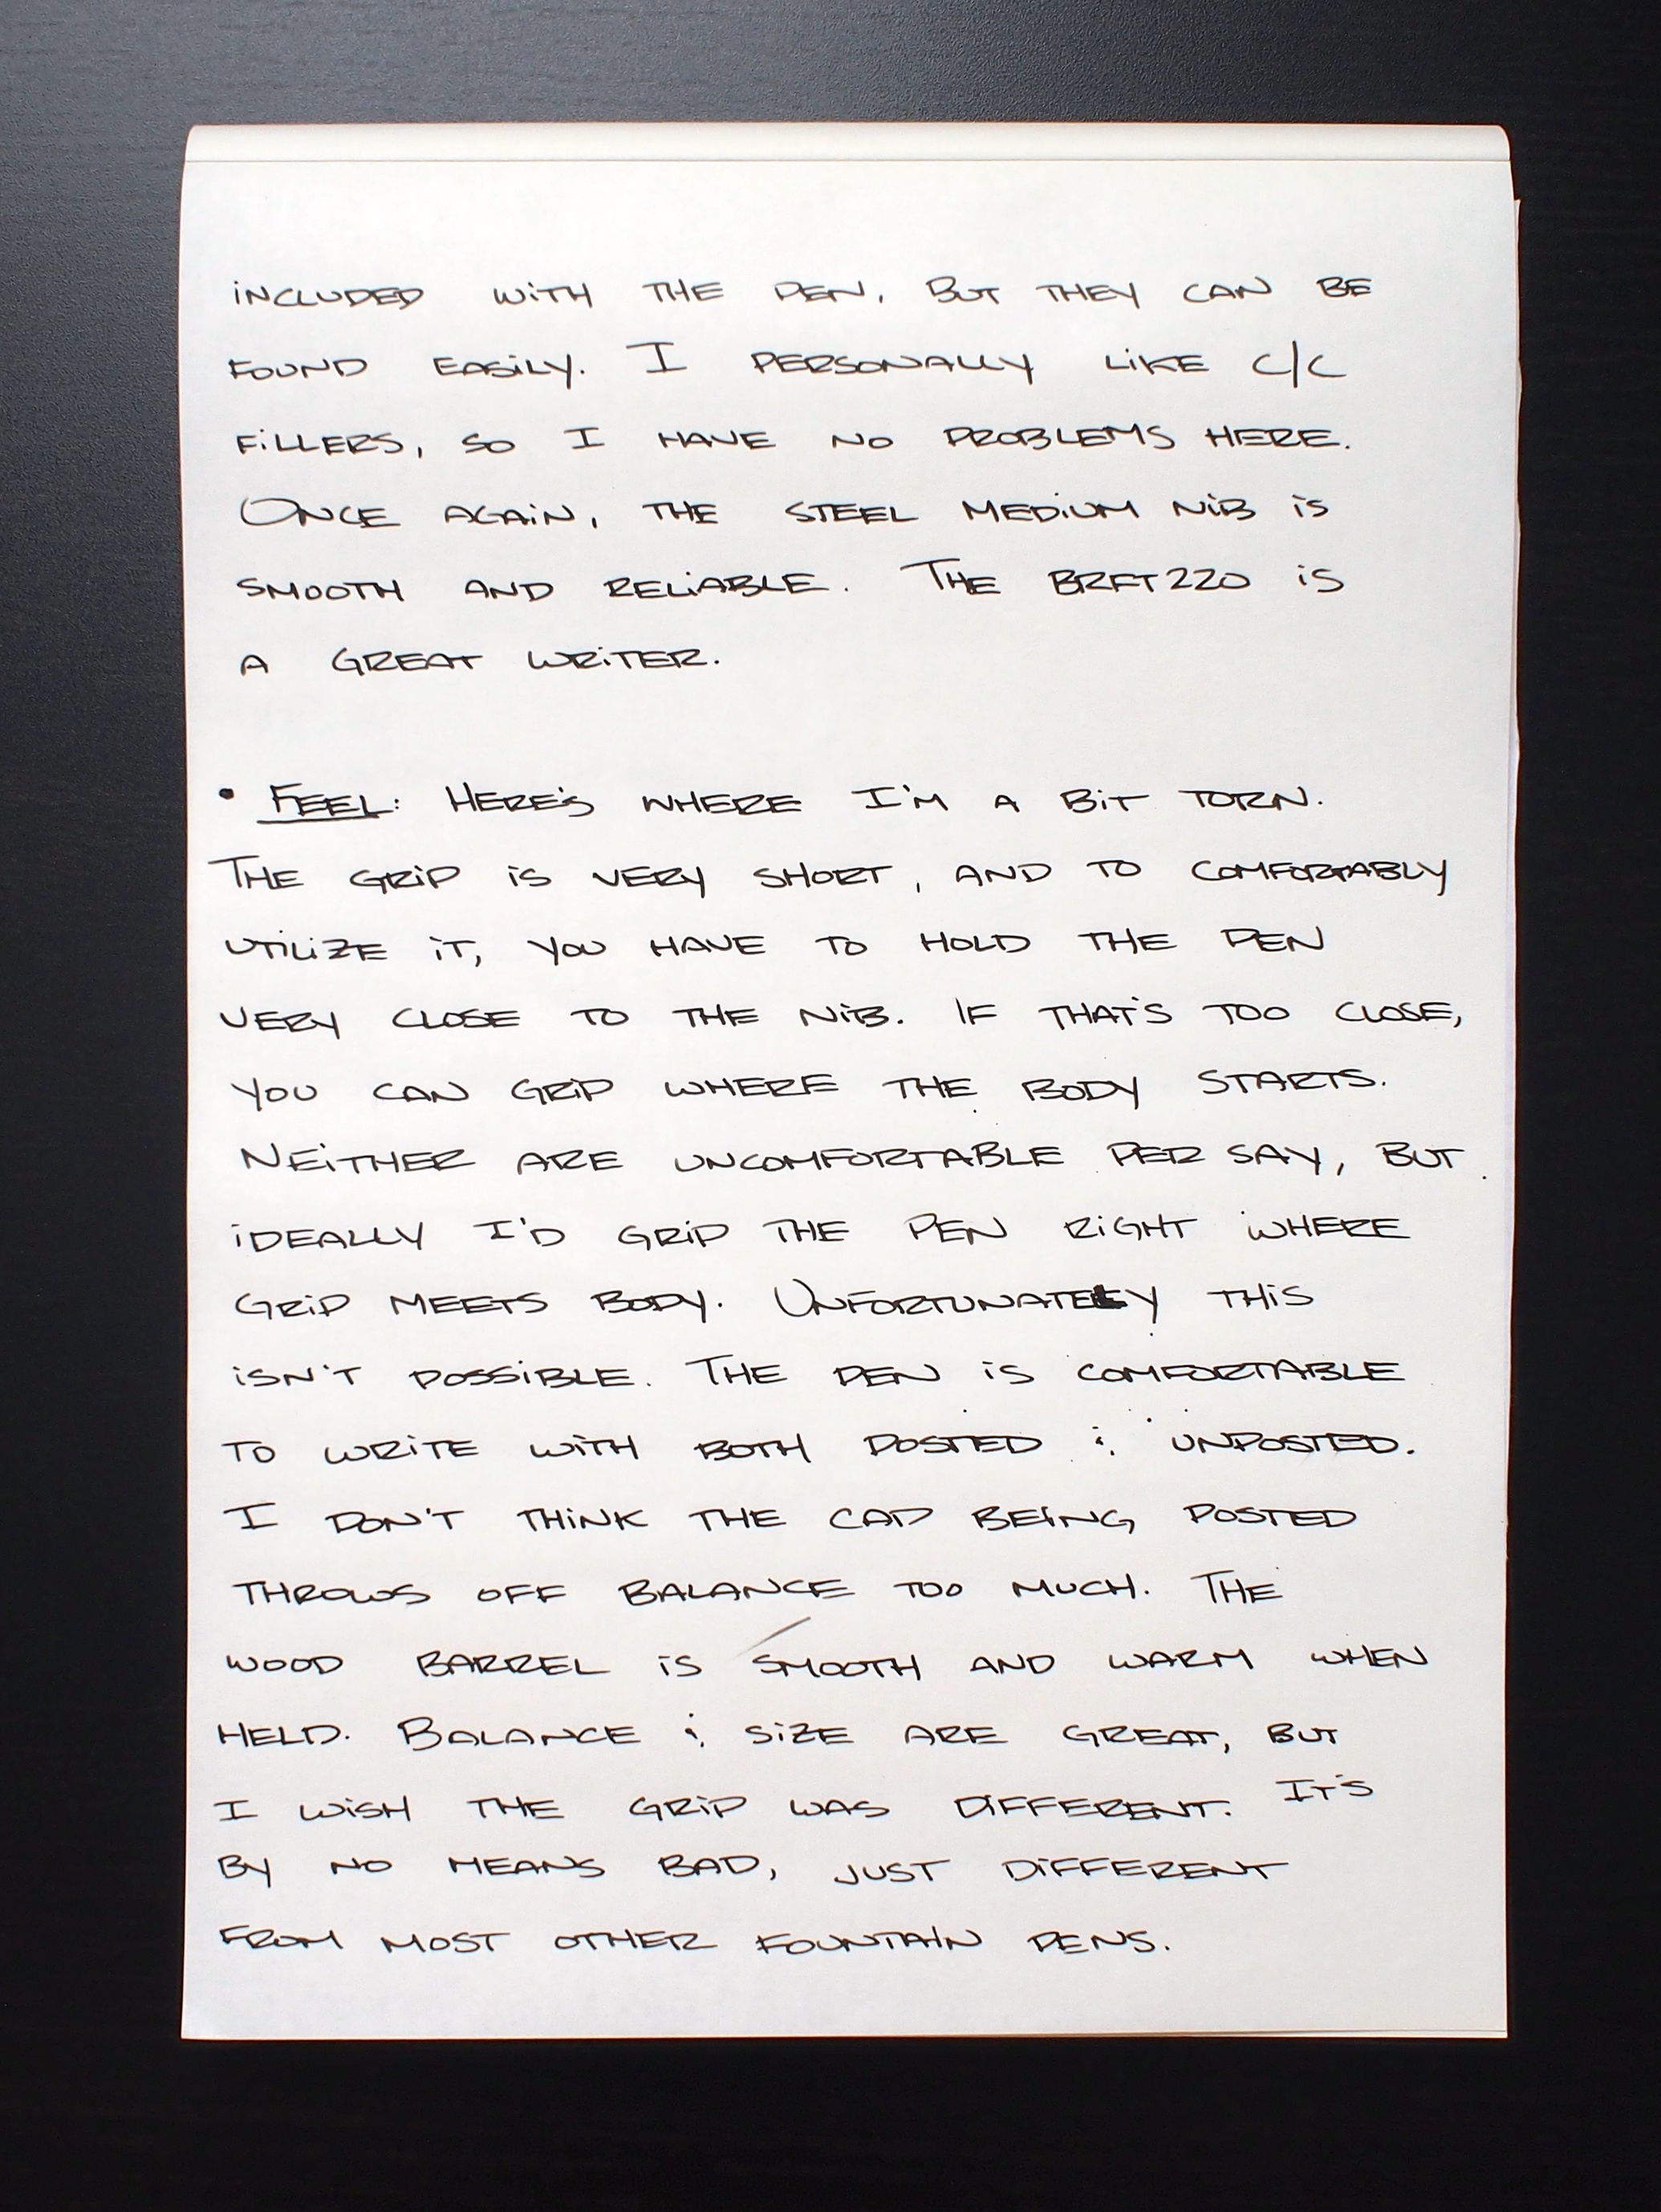 INCLUDED WITH THE PEN, BUT THEY CAN BE
FOUND EASILY. I PERSONALLY LIKE C/C
FILLERS, SO I HAVE NO PROBLEMS HERE.
ONCE AGAIN, THE STEEL MEDIUM NIB IS
SMOOTH AND RELIABLE. THE BRFT220 IS
A GREAT WRITER.
• FEEL: HERE'S WHERE I'M A BIT TORN.
THE GRIP IS VERY SHORT, AND TO COMFORTABLY
UTILIZE IT, YOU HAVE TO HOLD THE PEN
VERY CLOSE TO THE NIB. IF THAT'S TOO CLOSE,
YOU CAN GRIP WHERE THE BODY STARTS.
NEITHER ARE UNCOMFORTABLE PER SAY, BUT
IDEALLY I'D GRIP THE PEN RIGHT WHERE
GRIP MEETS BODY. UNFORTUNATELY THIS
ISN'T POSSIBLE. THE PEN IS COMFORTABLE
TO WRITE WITH BOTH POSTED & UNPOSTED.
I DON'T THINK THE CAP BEING POSTED
THROWS OFF BALANCE TOO MUCH. THE
WOOD BARREL IS SMOOTH AND WARM WHEN
HELD. BALANCE & SIZE ARE GREAT, BUT
I WISH THE GRIP WAS DIFFERENT. IT'S
BY NO MEANS BAD, JUST DIFFERENT
FROM MOST OTHER FOUNTAIN PENS.